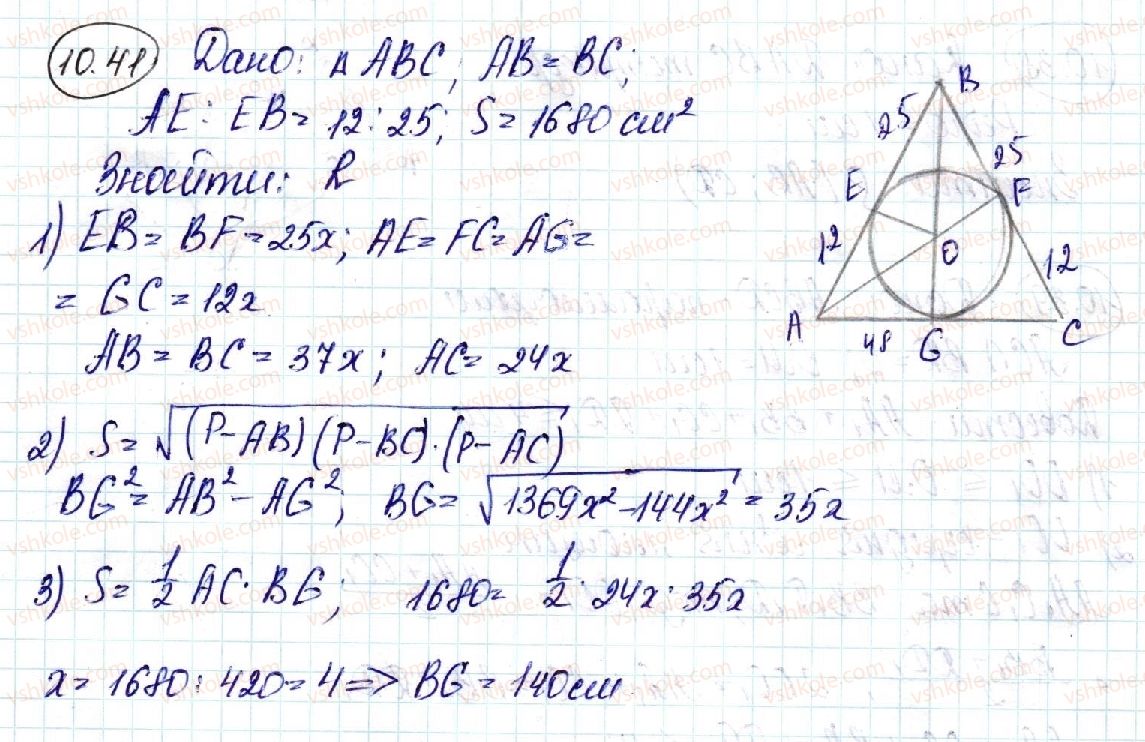 10.41 Дано: △ ABC, AB = BC;
AE : EB = 12 : 25; S = 1680 см²
Знайти: R
1) EB = BF = 25x; AE = FC = AG =
= GC = 12x
AB = BC = 37x; AC = 24x
2) S = √(P-AB)(P-BC)·(P-AC)
BG² = AB² - AG²; BG = √1369x² - 144x² = 35x
3) S = 1/2 AC · BG; 1680 = 1/2 · 24x · 35x
x = 1680 : 420 = 4 => BG = 140 см
B
25
25
E
F
12
O
12
A
48
G
C
vshkole.com